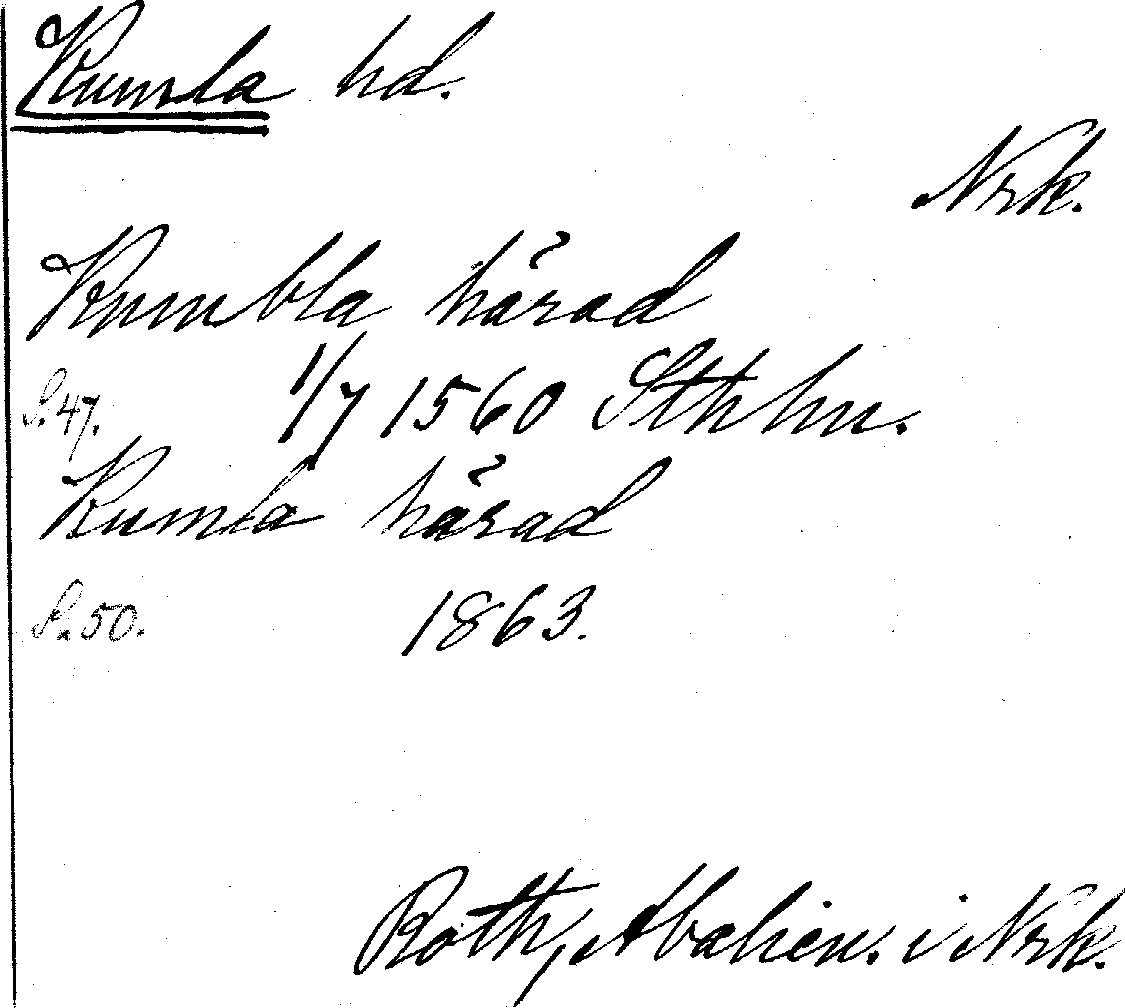 Kumla hd.
Nrk.
Kumbla härad
S. 47. 1/7 1560 Sthlm.
Kumla härad
S. 50. 1863.
Roth, Abalien. i Nrk.